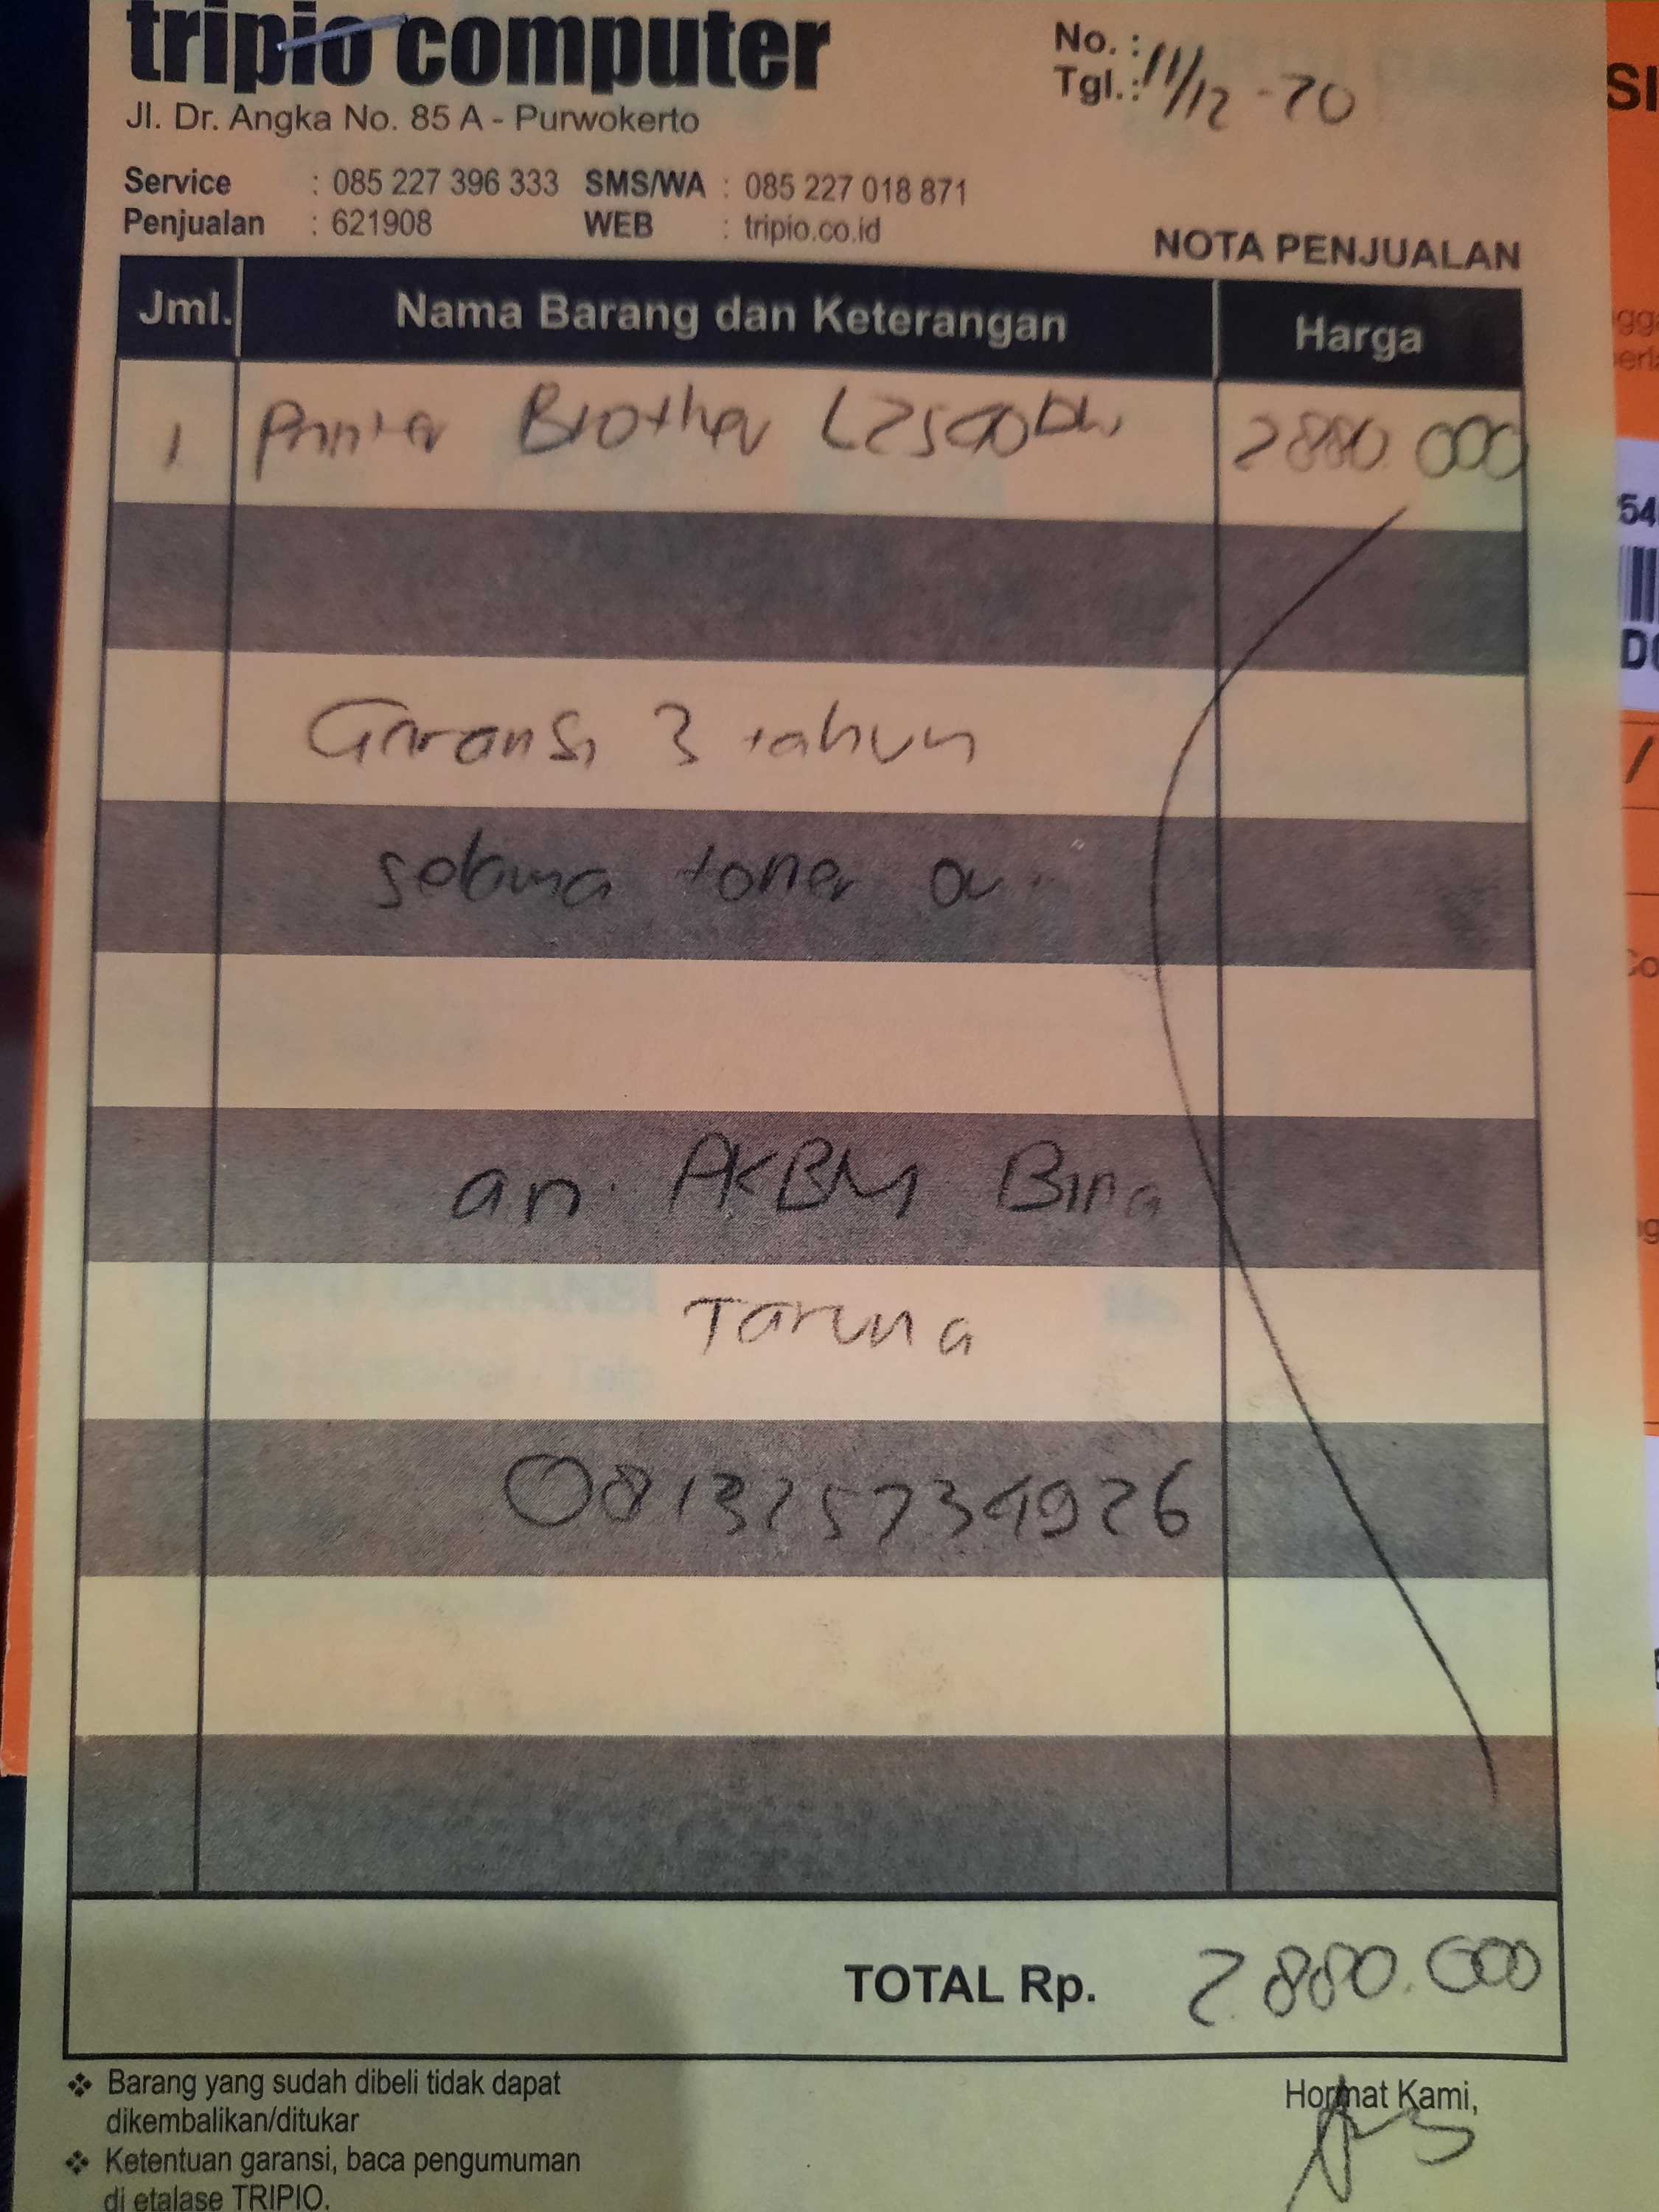 tripio computer
Jl. Dr. Angka No. 85 A - Purwokerto
No. :
Tgl. : 11/12 - 20
Service : 085 227 396 333 SMS/WA : 085 227 018 871
Penjualan : 621908 WEB : tripio.co.id
NOTA PENJUALAN
Jml. Nama Barang dan Keterangan Harga
1 Printer Brother 2880.000
Garansi 3 tahun
selama toner
an. AKBM Bina
Taruna
081325734926
TOTAL Rp. 2.880.000
❖ Barang yang sudah dibeli tidak dapat
dikembalikan/ditukar
❖ Ketentuan garansi, baca pengumuman
di etalase TRIPIO.
Hormat Kami,